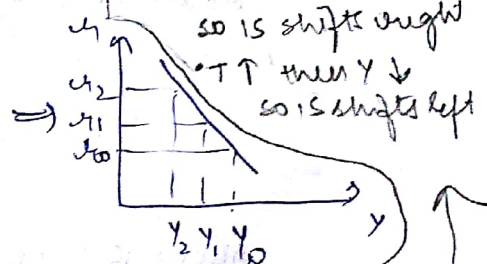 so IS shifts right
r
• T ↑ then Y ↓
so, IS shifts left
r2
⇒ r1
r0
Y2 Y1 Y0
Y